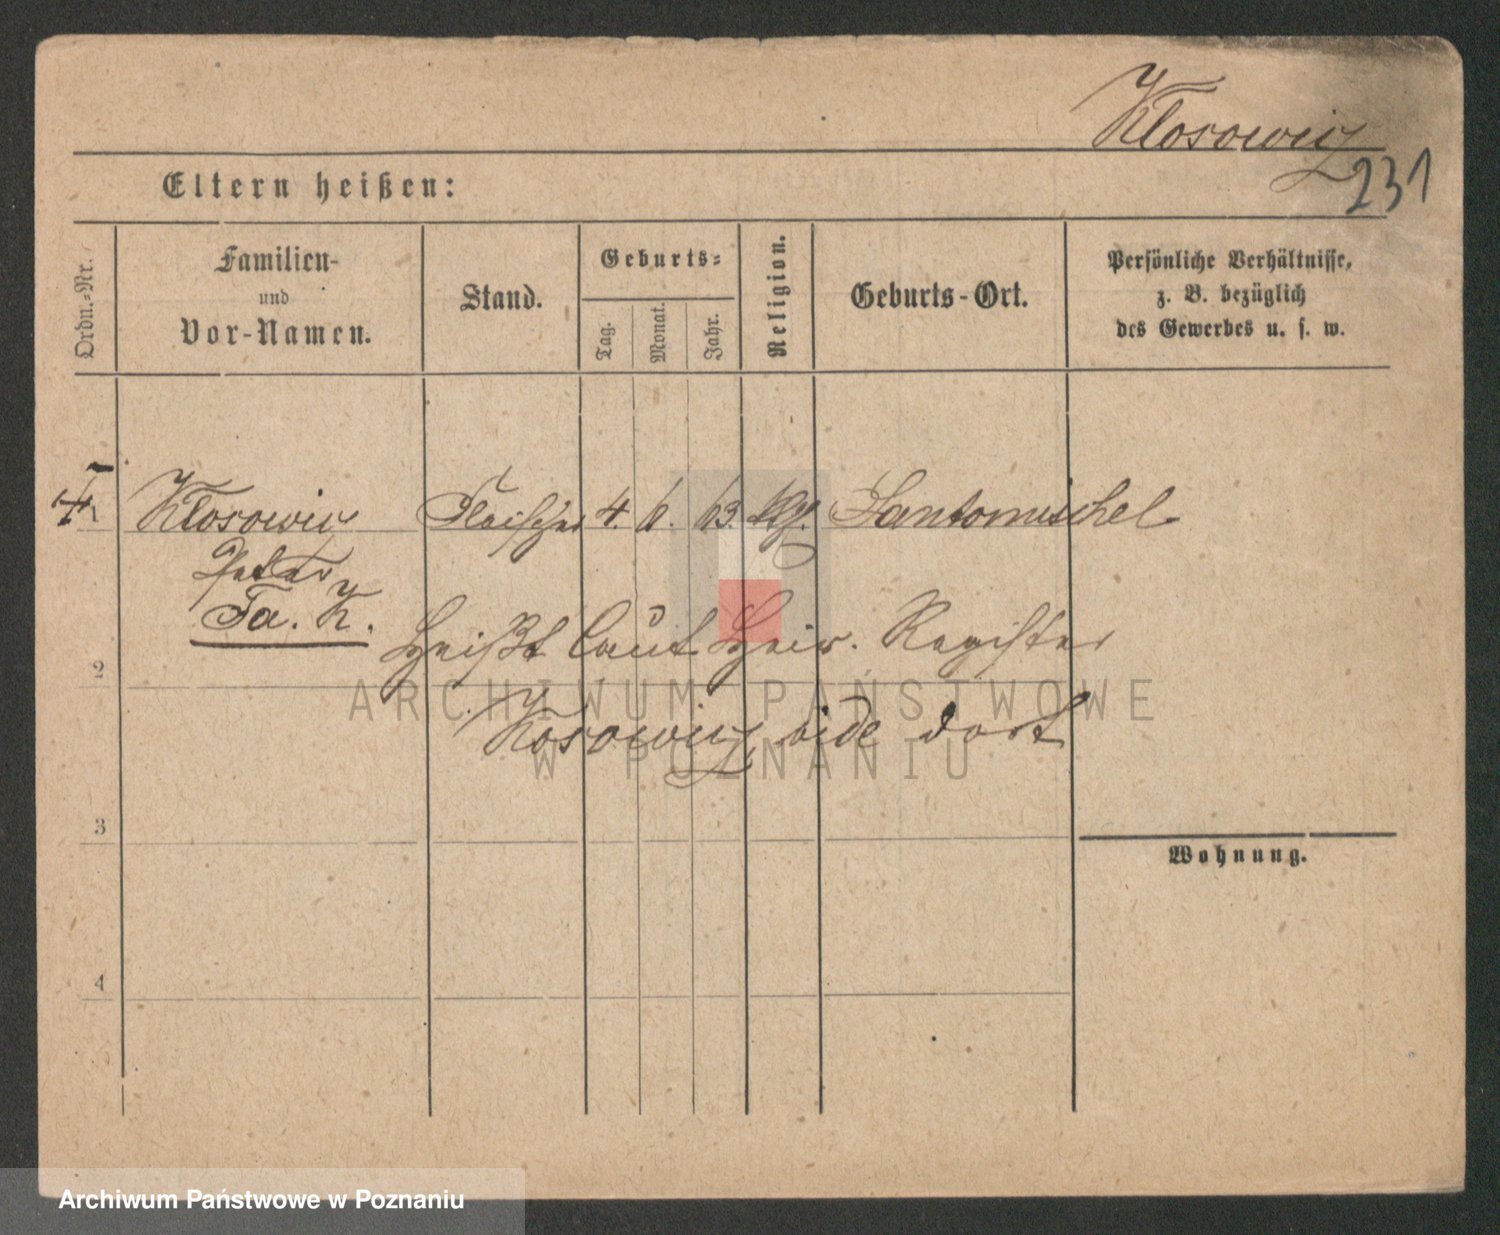 Klosowicz
231
Eltern heißen:
Ordn.-Nr.
Familien-
und
Vor-Namen.
Stand.
Geburts-
Tag.
Monat.
Jahr.
Religion.
Geburts-Ort.
Persönliche Verhältnisse,
z. B. bezüglich
des Gewerbes u. s. w.
1 Klosowicz Fleischer 4. 6. 63. kth. Santomischel
Peter
Fa. K.
Heißt laut Heir. Register
2
Kosowicz, vide dort
3
Wohnung.
4
ARCHIWUM PAŃSTWOWE
W POZNANIU
Archiwum Państwowe w Poznaniu